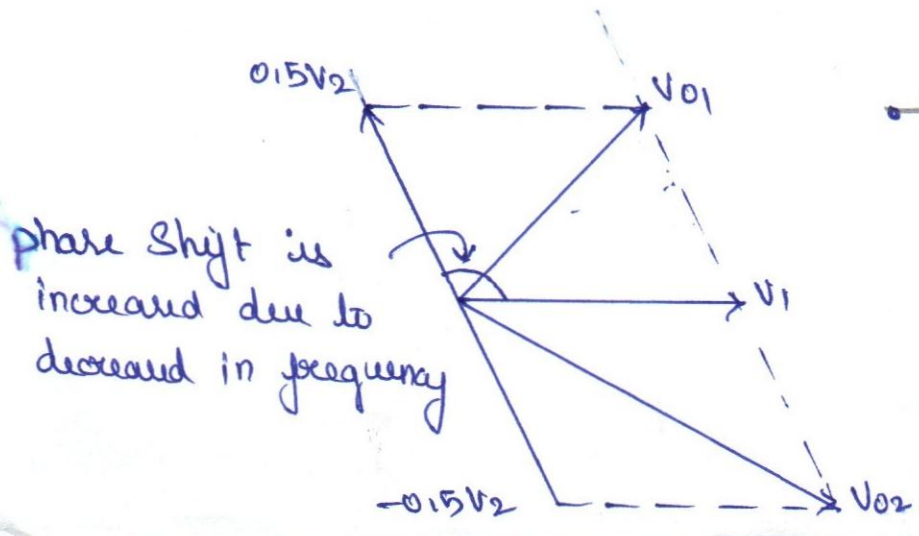 0.5V2
V01
phase Shift is
increased due to
decreased in frequency
V1
-0.5V2
V02